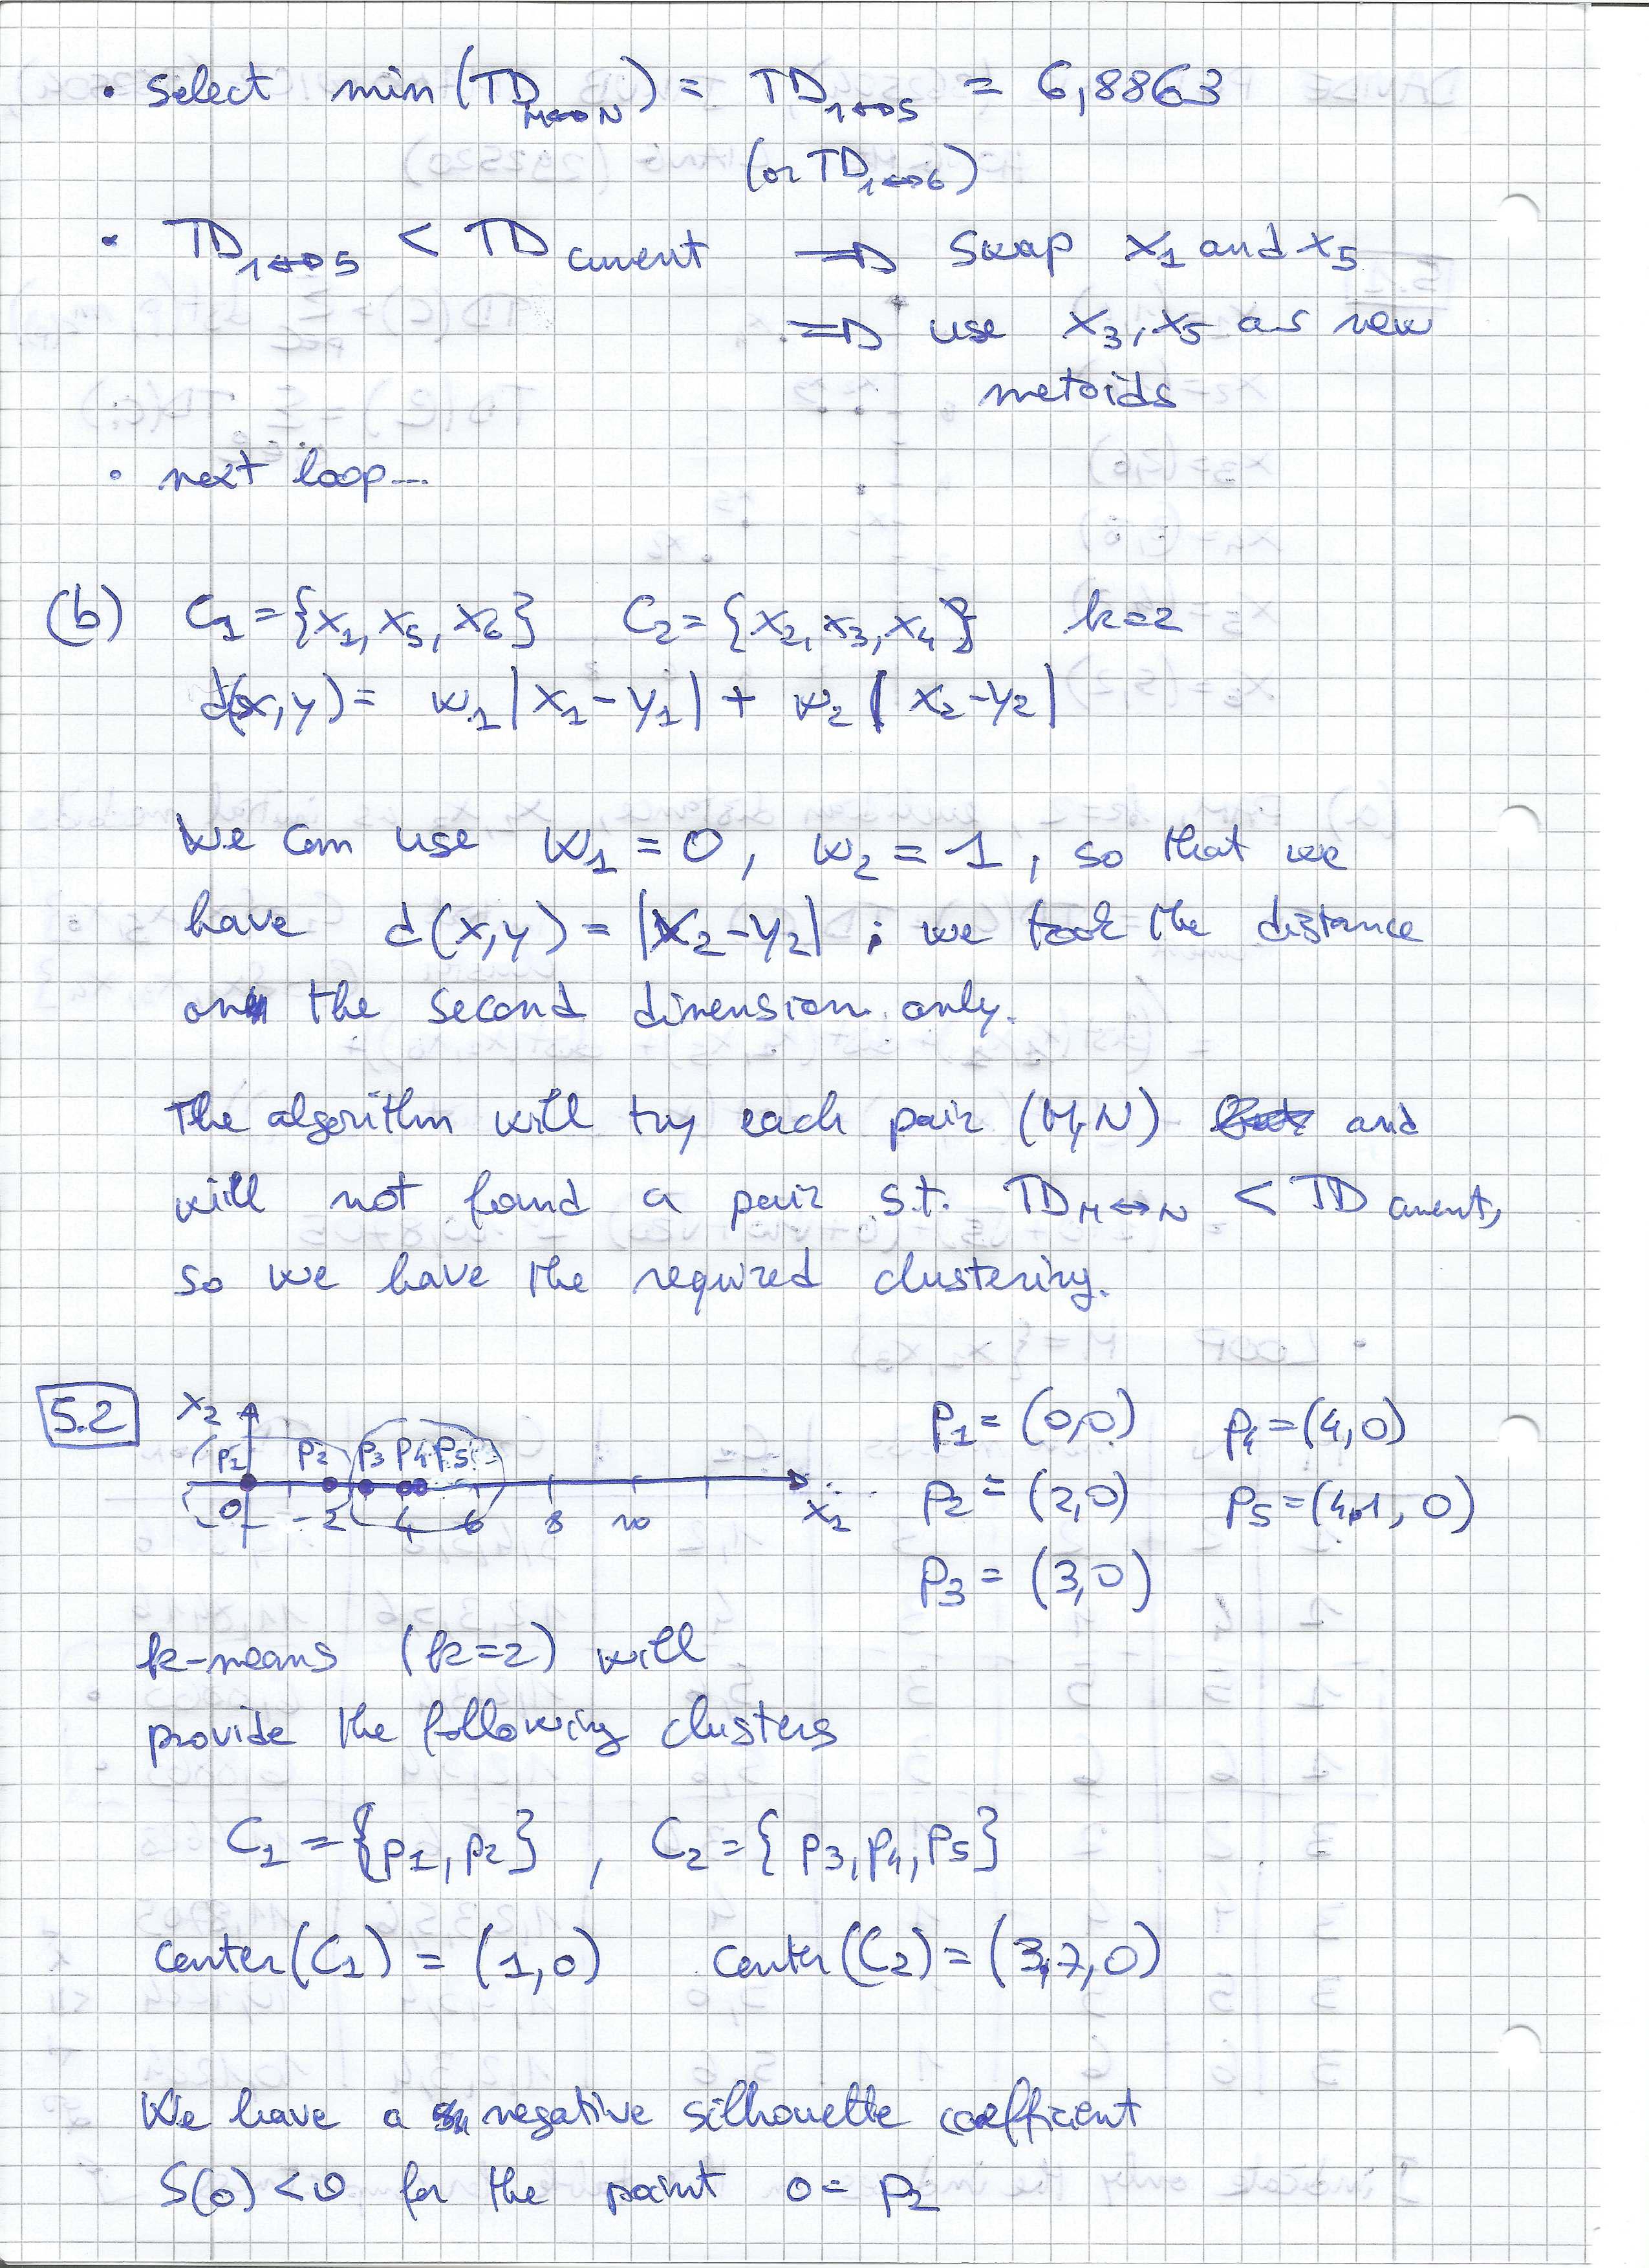 • select min(TD_M↔N) = TD_1↔5 = 6,8863
(or TD_1↔6)
• TD_1↔5 < TD current ⇒ swap x1 and x5
⇒ use x3, x5 as new
metoids
• next loop...
(b) C1={x1, x5, x6} C2={x2, x3, x4} k=2
d(x,y)= w1|x1-y1| + w2|x2-y2|
We can use w1=0, w2=1, so that we
have d(x,y)=|x2-y2| ; we took the distance
on the second dimension only.
The algorithm will try each pair (M,N) and
will not found a pair s.t. TD_M↔N < TD current,
so we have the required clustering.
5.2 x2 p1 p2 p3 p4 p5 p1=(0,0) p4=(4,0)
0 2 4 6 8 10 x1 p2=(2,0) p5=(4,1, 0)
p3=(3,0)
k-means (k=2) will
provide the following clusters
C1={p1, p2} , C2={p3, p4, p5}
center(C1) = (1,0) center(C2)=(3,7,0)
We have a negative silhouette coefficient
S(o)<0 for the point o= p2